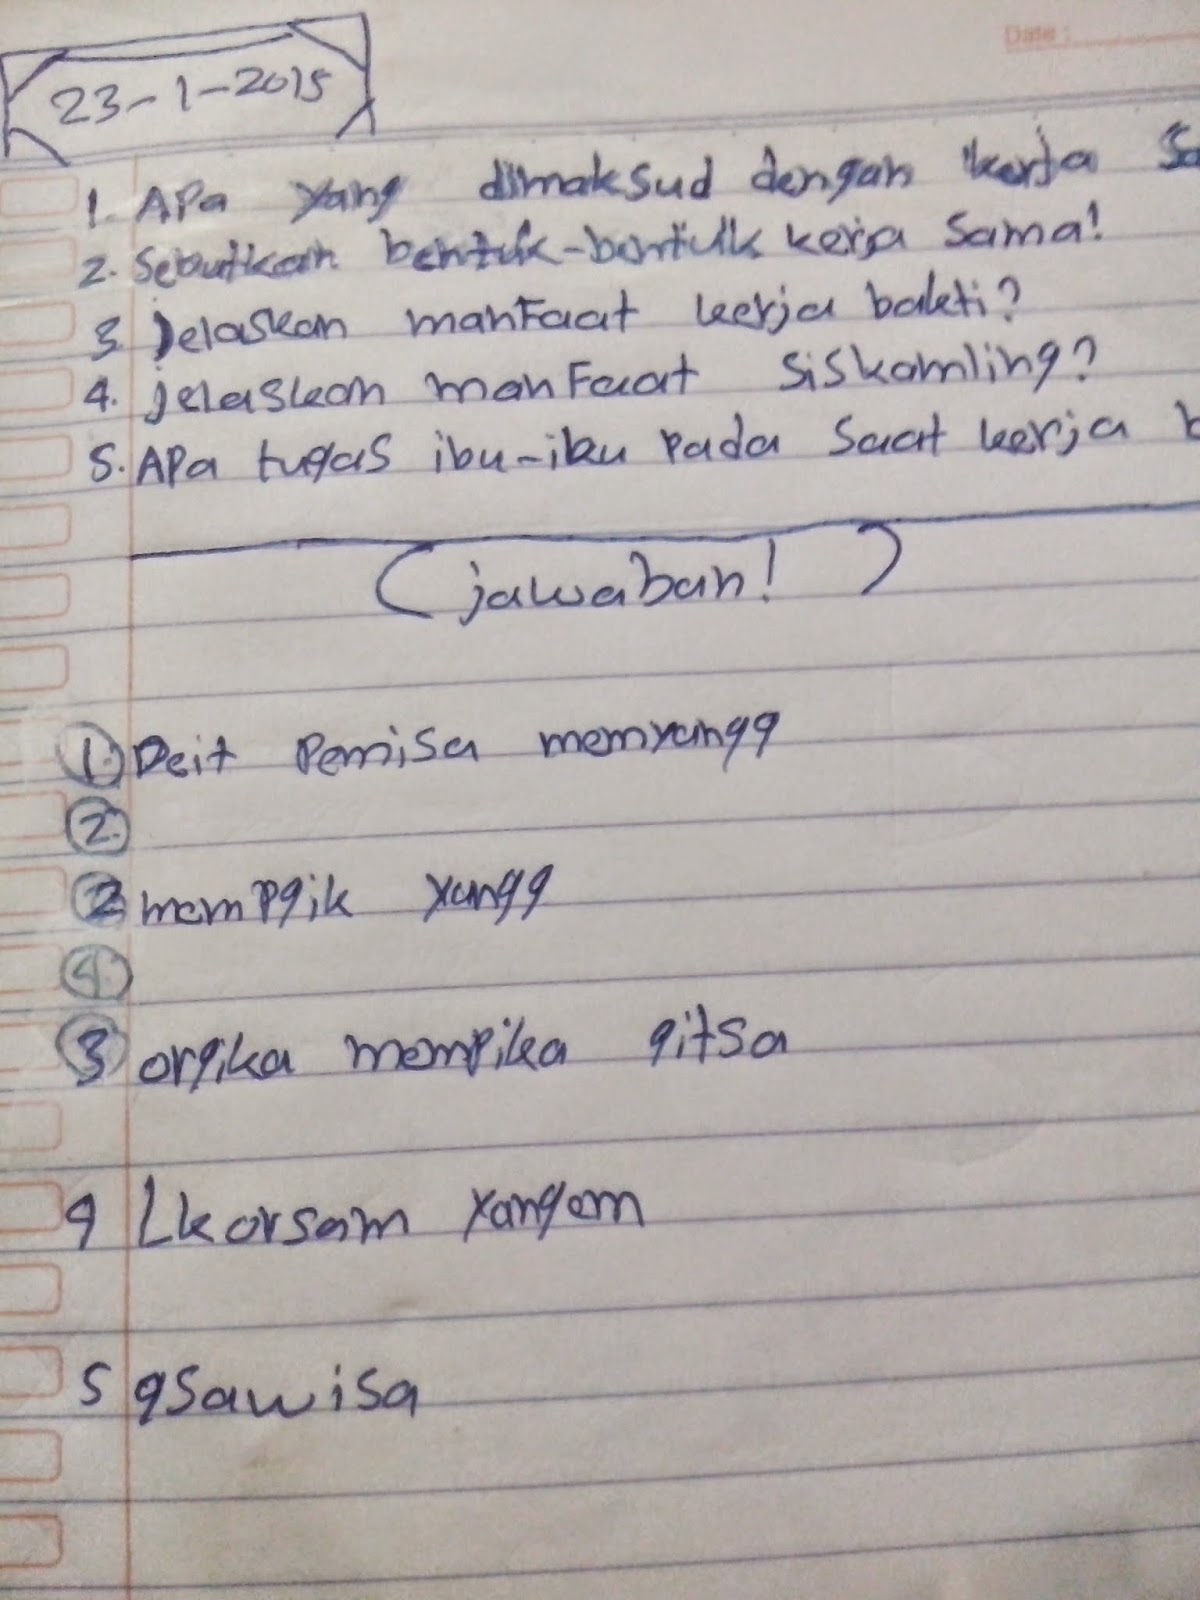 Date :
23-1-2015
1. APa yang dimaksud dengan kerja Sa
2. Sebutkan bentuk-bentuk kerja Sama!
3. Jelaskan manFaat kerja bakti?
4. jelaskan manFaat siskamling?
5. APa tugas ibu-ibu Pada Saat kerja b
(jawaban!)
1. Deit Pemisa memyangg
2.
2. memPgik yangg
4.
3 orgika mempika gitsa
4 Lkorsam yangem
5 gsawisa